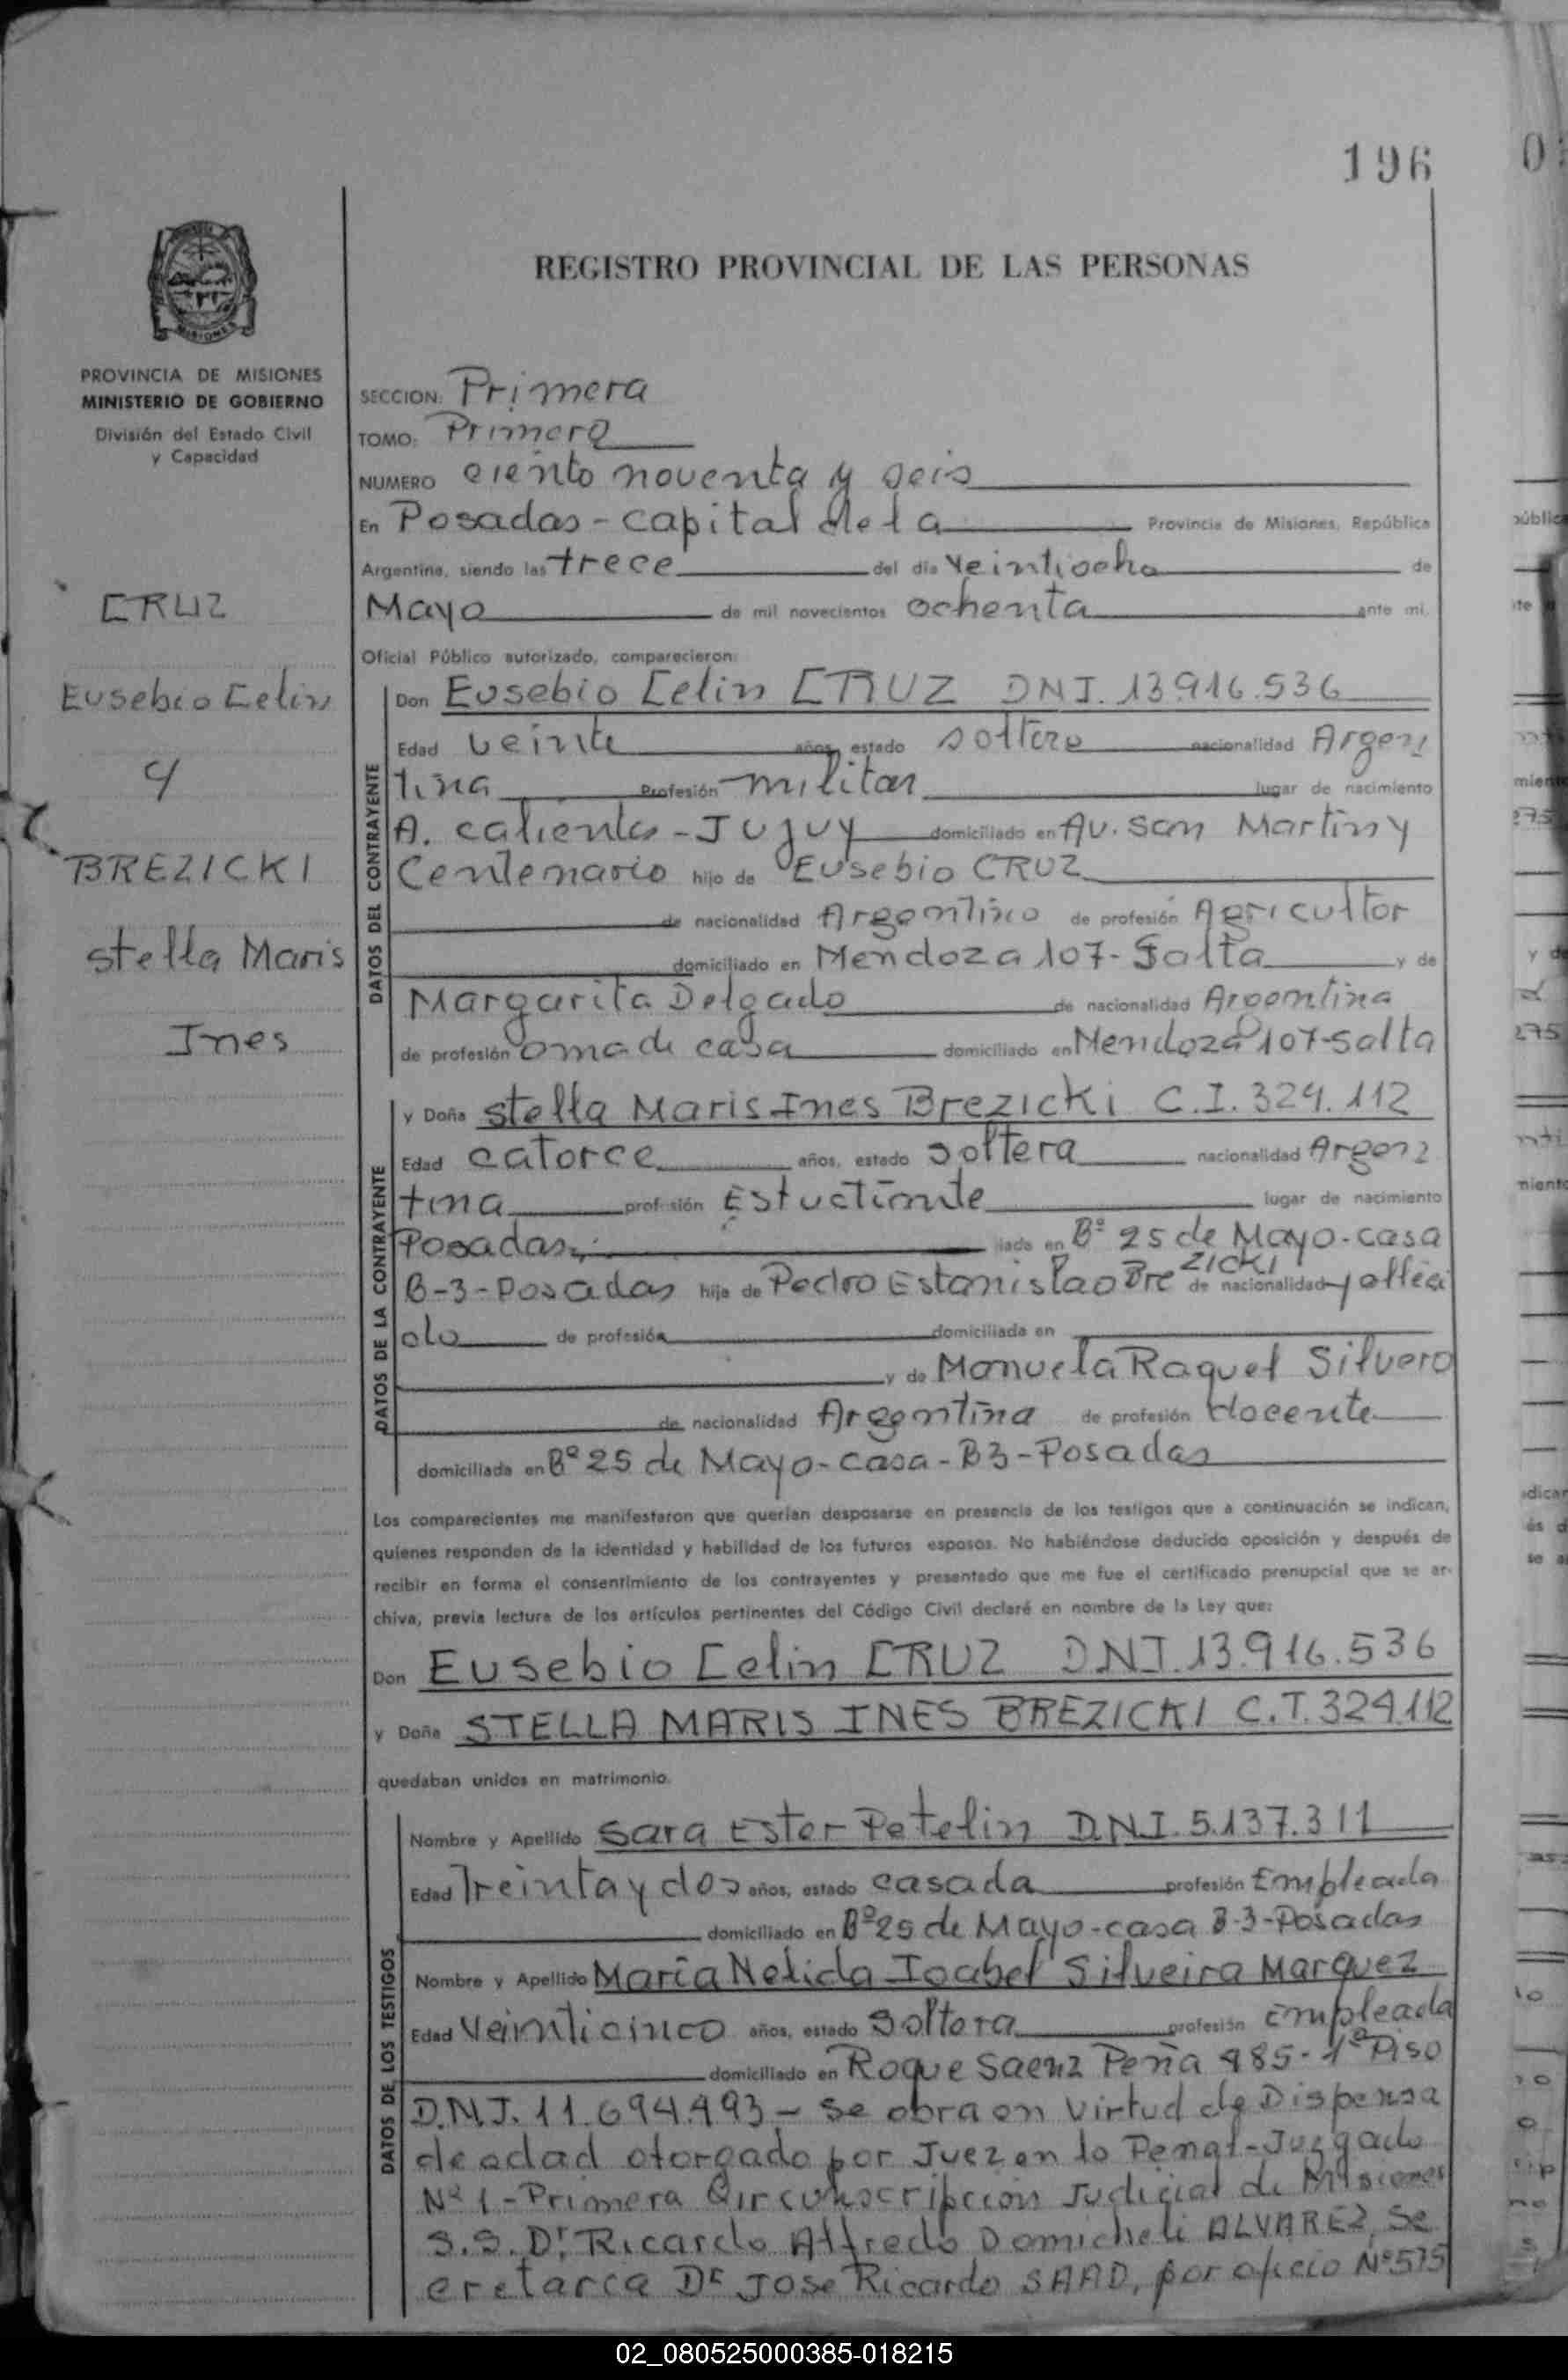 196
REGISTRO PROVINCIAL DE LAS PERSONAS
MISIONES
PROVINCIA DE MISIONES
MINISTERIO DE GOBIERNO
División del Estado Civil
y Capacidad
CRUZ
Eusebio Celin
y
BREZICKI
Stella Maris
Ines
SECCION: Primera
TOMO: Primero
NUMERO ciento noventa y seis
En Posadas - capital de la Provincia de Misiones, República
Argentina, siendo las trece del día veintiocho de
Mayo de mil novecientos ochenta ante mi,
Oficial Público autorizado, comparecieron:
DATOS DEL CONTRAYENTE
Don Eusebio Celin CRUZ DNI. 13.916.536
Edad veinte años, estado soltero nacionalidad Argen
tina Profesión militar lugar de nacimiento
A. calientes - Jujuy domiciliado en Av. San Martin y
Centenario hijo de Eusebio CRUZ
de nacionalidad Argentino de profesión Agricultor
domiciliado en Mendoza 107 - Salta y de
Margarita Delgado de nacionalidad Argentina
de profesión ama de casa domiciliado en Mendoza 107-Salta
DATOS DE LA CONTRAYENTE
y Doña Stella Maris Ines Brezicki C.I. 324.112
Edad catorce años, estado soltera nacionalidad Argen
tina profesión Estudiante lugar de nacimiento
Posadas liada en Bº 25 de Mayo - casa
B-3 - Posadas hija de Pedro Estanislao Brezicki de nacionalidad falleci
do de profesión domiciliada en
y de Manuela Raquel Silvero
de nacionalidad Argentina de profesión docente
domiciliada en Bº 25 de Mayo - casa - B3 - Posadas
Los comparecientes me manifestaron que querían desposarse en presencia de los testigos que a continuación se indican,
quienes responden de la identidad y habilidad de los futuros esposos. No habiéndose deducido oposición y después de
recibir en forma el consentimiento de los contrayentes y presentado que me fue el certificado prenupcial que se ar-
chiva, previa lectura de los artículos pertinentes del Código Civil declaré en nombre de la Ley que:
Don Eusebio Celin CRUZ DNI. 13.916.536
y Doña STELLA MARIS INES BREZICKI C.I. 324.112
quedaban unidos en matrimonio.
DATOS DE LOS TESTIGOS
Nombre y Apellido Sara Ester Petelin D.N.I. 5.137.311
Edad Treinta y dos años, estado casada profesión Empleada
domiciliado en Bº 25 de Mayo - casa B-3 - Posadas
Nombre y Apellido Maria Nelida Isabel Silveira Marquez
Edad Veinticinco años, estado soltera profesión Empleada
domiciliado en Roque Saenz Peña 985 - 1º Piso
D.N.I. 11.694.993 - se obra en virtud de Dispensa
de edad otorgado por Juez en lo Penal - Juzgado
Nº 1 - Primera Circunscripcion Judicial de Misiones
S.S. Dr. Ricardo Alfredo Domicheli ALVAREZ, Se
cretarea Dr Jose Ricardo SAAD, por oficio Nº 575
02_080525000385-018215